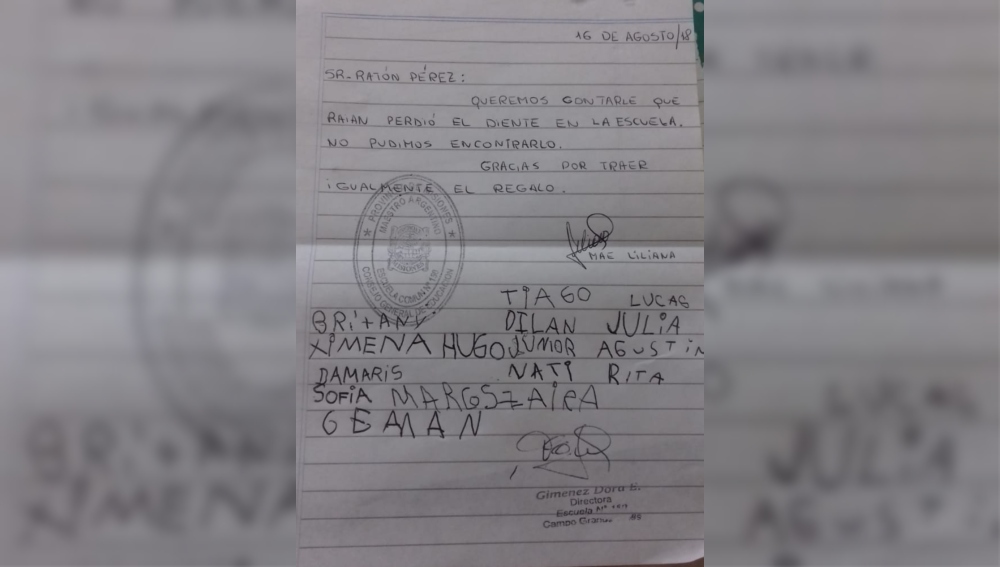 16 DE AGOSTO/18
SR. RATÓN PÉREZ:
QUEREMOS CONTARLE QUE
RAIAN PERDIÓ EL DIENTE EN LA ESCUELA.
NO PUDIMOS ENCONTRARLO.
GRACIAS POR TRAER
IGUALMENTE EL REGALO.
PROVINCIA DE MISIONES
MAESTRO ARGENTINO
ESCUELA COMUN Nº
CONSEJO GENERAL DE EDUCACION
MAE LILIANA
TIAGO LUCAS
BRITANY DILAN JULIA
XIMENA HUGO JUNIOR AGUSTIN
DAMARIS NATI RITA
SOFIA MARCOS ZAIRA
GEMAN
Gimenez Dora E.
Directora
Escuela Nº
Campo Grande